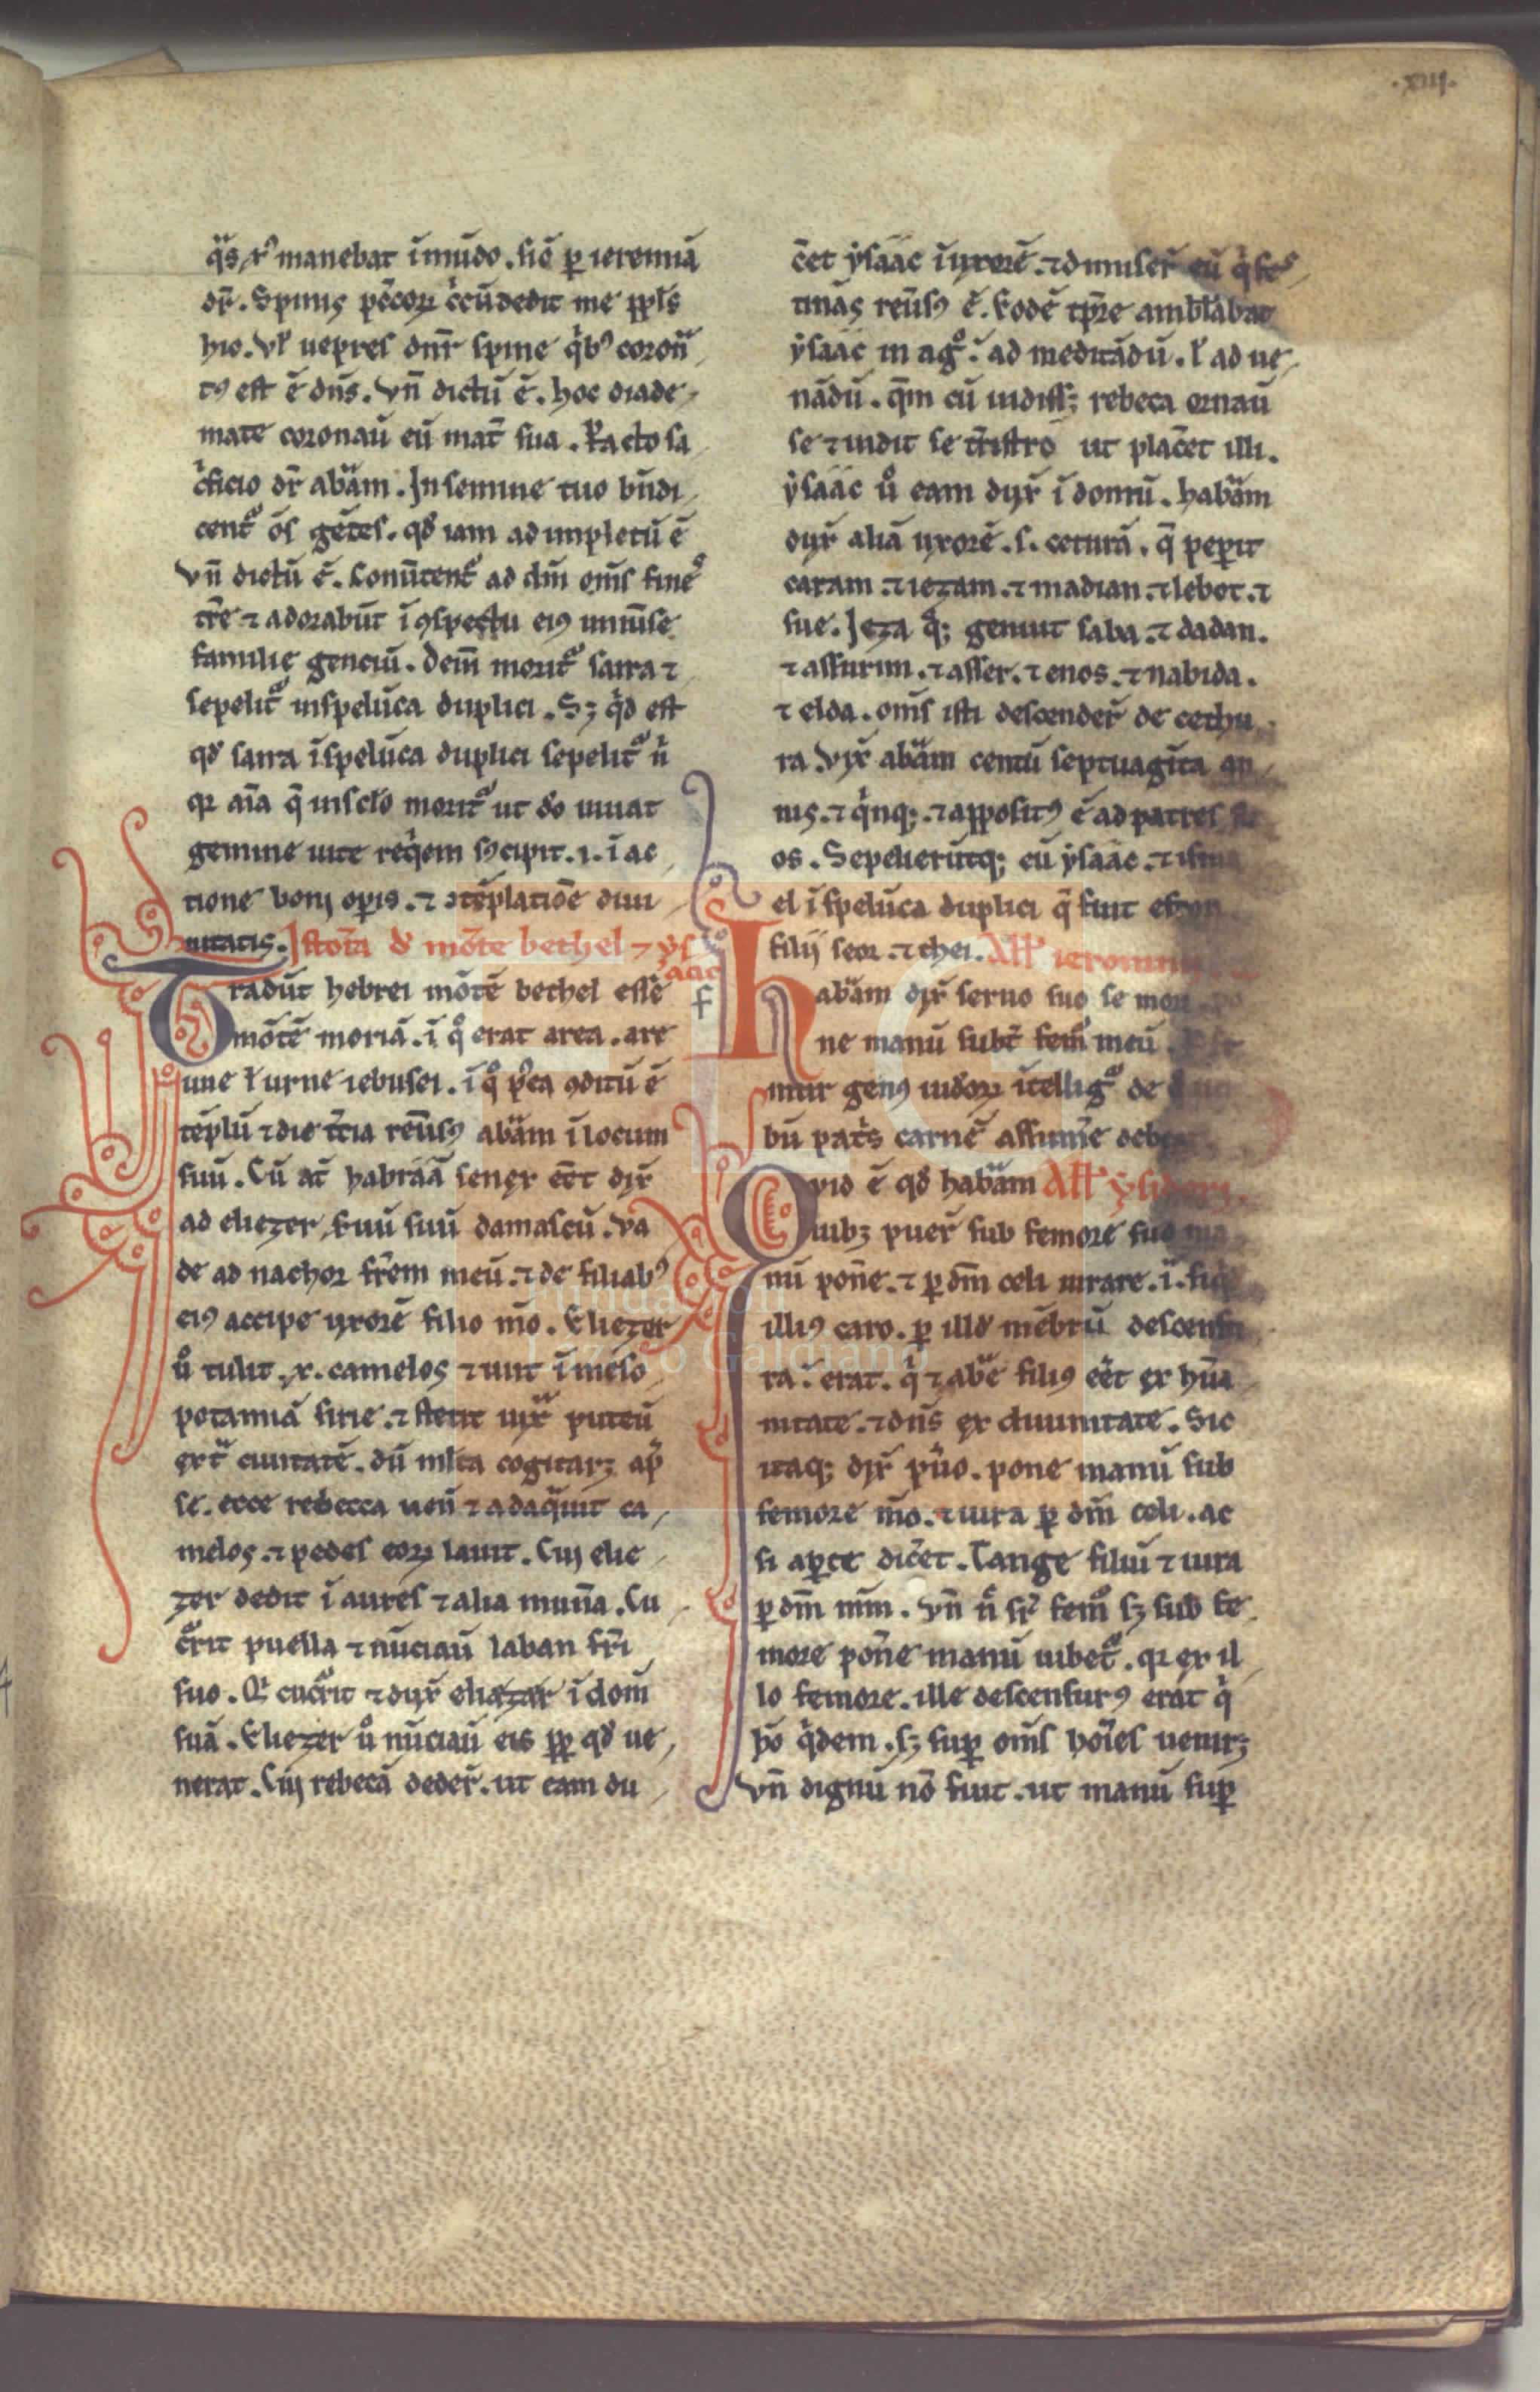 .xiii.
q̈s χp̄ manebat ī mūdo. sic̄ ꝑ ieremiā
dr̄. Spinis pc̄coꝝ c̓cūdedit me ppl̄s
hic. Vl̓ uepres dn̄r spine q̓bꝰ coron̄
tꝰ est ē dn̄s. Vn̄ dictū ē. hoc diade
mate coronaū eū mat̄ sua. Facto sa
c̓ficio dr̄ abäm. In semine tuo bn̄di
cent̉ ōs gētes. qd̓ iam adimpletū ē
Vn̄ dictū ē. Conūtent̉ ad dm̄ om̄s fine
tr̄e ⁊ adorabūt ī ꝯspectu eiꝰ uniūse
familie genciū. Dem̄ morit̉ sarra ⁊
sepelit̉ in spelūca duplici. Sꝫ q̓d est
qd̓ sarra ī spelūca duplici sepelit̉ ń
qr aīa q̄ in sc̄lo morit̉ ut do̓ uiuat
gemine uite req̓em s̓cipit. .i. ī ac
tione boni oꝑis. ⁊ ꝯtēplatiōe diui
nitatis. Istoīa d̓ mōte bethel ⁊ ys
aac
Tradūt hebrei mōtē bethel esse
mōtē moriā. ī q̊ erat area. are
une l̓ urne iebusei. ī q̊ p̓ea ꝯditū ē
tēplū ⁊ die tc̄ia reūsꝰ abäm ī locum
suū. Cū at̄ habraā senex eēt dix̄
ad eliezer ẜuū suū damascū. Va
de ad nachor fr̄em meū. ⁊ de filiabꝰ
eiꝰ accipe uxorē filio m̄o. Eliezer
u̓ tulit .x. camelos ⁊ iuit ī meso
potamiā sirie. ⁊ stetit iux̄ puteū
ext̄ ciuitatē. dū ml̄ta cogitarꝫ ap̓
se. ecce rebecca uen̄ ⁊ adaq̈uit ca
melos. ⁊ pedes eoꝝ lauit. Cui elie
zer dedit ī aures ⁊ alia mun̄a. Cu
c̓rit puella ⁊ nūciaū laban fr̄i
suo. Qi cuc̓rit ⁊ dux̄ eliezer ī dom̄
suā. Eliezer u̓ nūciaū eis ꝓp qd̓ ue
nerat. Cui rebecā deder̄. ut eam du
c̄et ysaac ī uxorē. ⁊ dimiser̄ eū q̓ fes
tinās reūsꝰ ē. Eodē tꝑ̄e amblabat
ysaac in agr̊. ad meditādū. l̓ ad ue
nādū. q̄m cū uidissꝫ rebeca ornaū
se ⁊ uidit se ut plac̄et illi.
ysaac u̓ eam dux̄ ī domū. habäm
dux̄ aliā uxorē. s. ceturā. q̄ peꝑit
caram. ⁊ iezam. ⁊ madian. ⁊ lebot. ⁊
sue. Ieza qꝫ genuit saba. ⁊ dadan.
⁊ assurim. ⁊ asser. ⁊ enos. ⁊ nabida.
⁊ elda. om̄s isti descender̄ de cethu
ra. Vix̄ abäm centū septuagīta an
nis. ⁊ q̓nqꝫ. ⁊ appositꝰ ē ad patres su
os. Sepelierūtqꝫ eū ysaac. ⁊ isma
el ī spelūca duplici q̄ fuit
filij seor. ⁊ thei. All̓ ieronimi
habäm dix̄ seruo suo se mori. po
ne manū subt̄ fem̄ meū.
mur genꝰ iud̓oꝝ ītellig̉ de
bū patris carnē assum̄e
Quid ē qd̓ habäm All̓ ysidori.
iubꝫ puer̄ sub femore suo ma
nū pon̄e. ⁊ ꝑ dm̄ celi iurare. .i.
illiꝰ caro. ꝑ illd̓ mēbrū descensu
ra. erat. q̓ ⁊ abe̓ filiꝰ eēt ex hūa
nitate. ⁊ dn̄s ex diuinitate. Sic
itaqꝫ dix̄ p̓uo. pone manū sub
femore m̄o. ⁊ iura ꝑ dm̄ celi. ac
si aꝑte dic̄et. Tange filiū ⁊ iura
ꝑ dm̄ mm̄. Vn̄ n̄ sr̓ fem̊ sꝫ sub fe
more pon̄e manū iubet̉. qr ex il
lo femore. ille descensurꝰ erat q̓
ho̓ q̓dem. sꝫ suꝑ om̄s hoīes uenirꝫ
Vn̄ dignū nō fuit. ut manū suꝑ
Fundación
Lázaro Galdiano